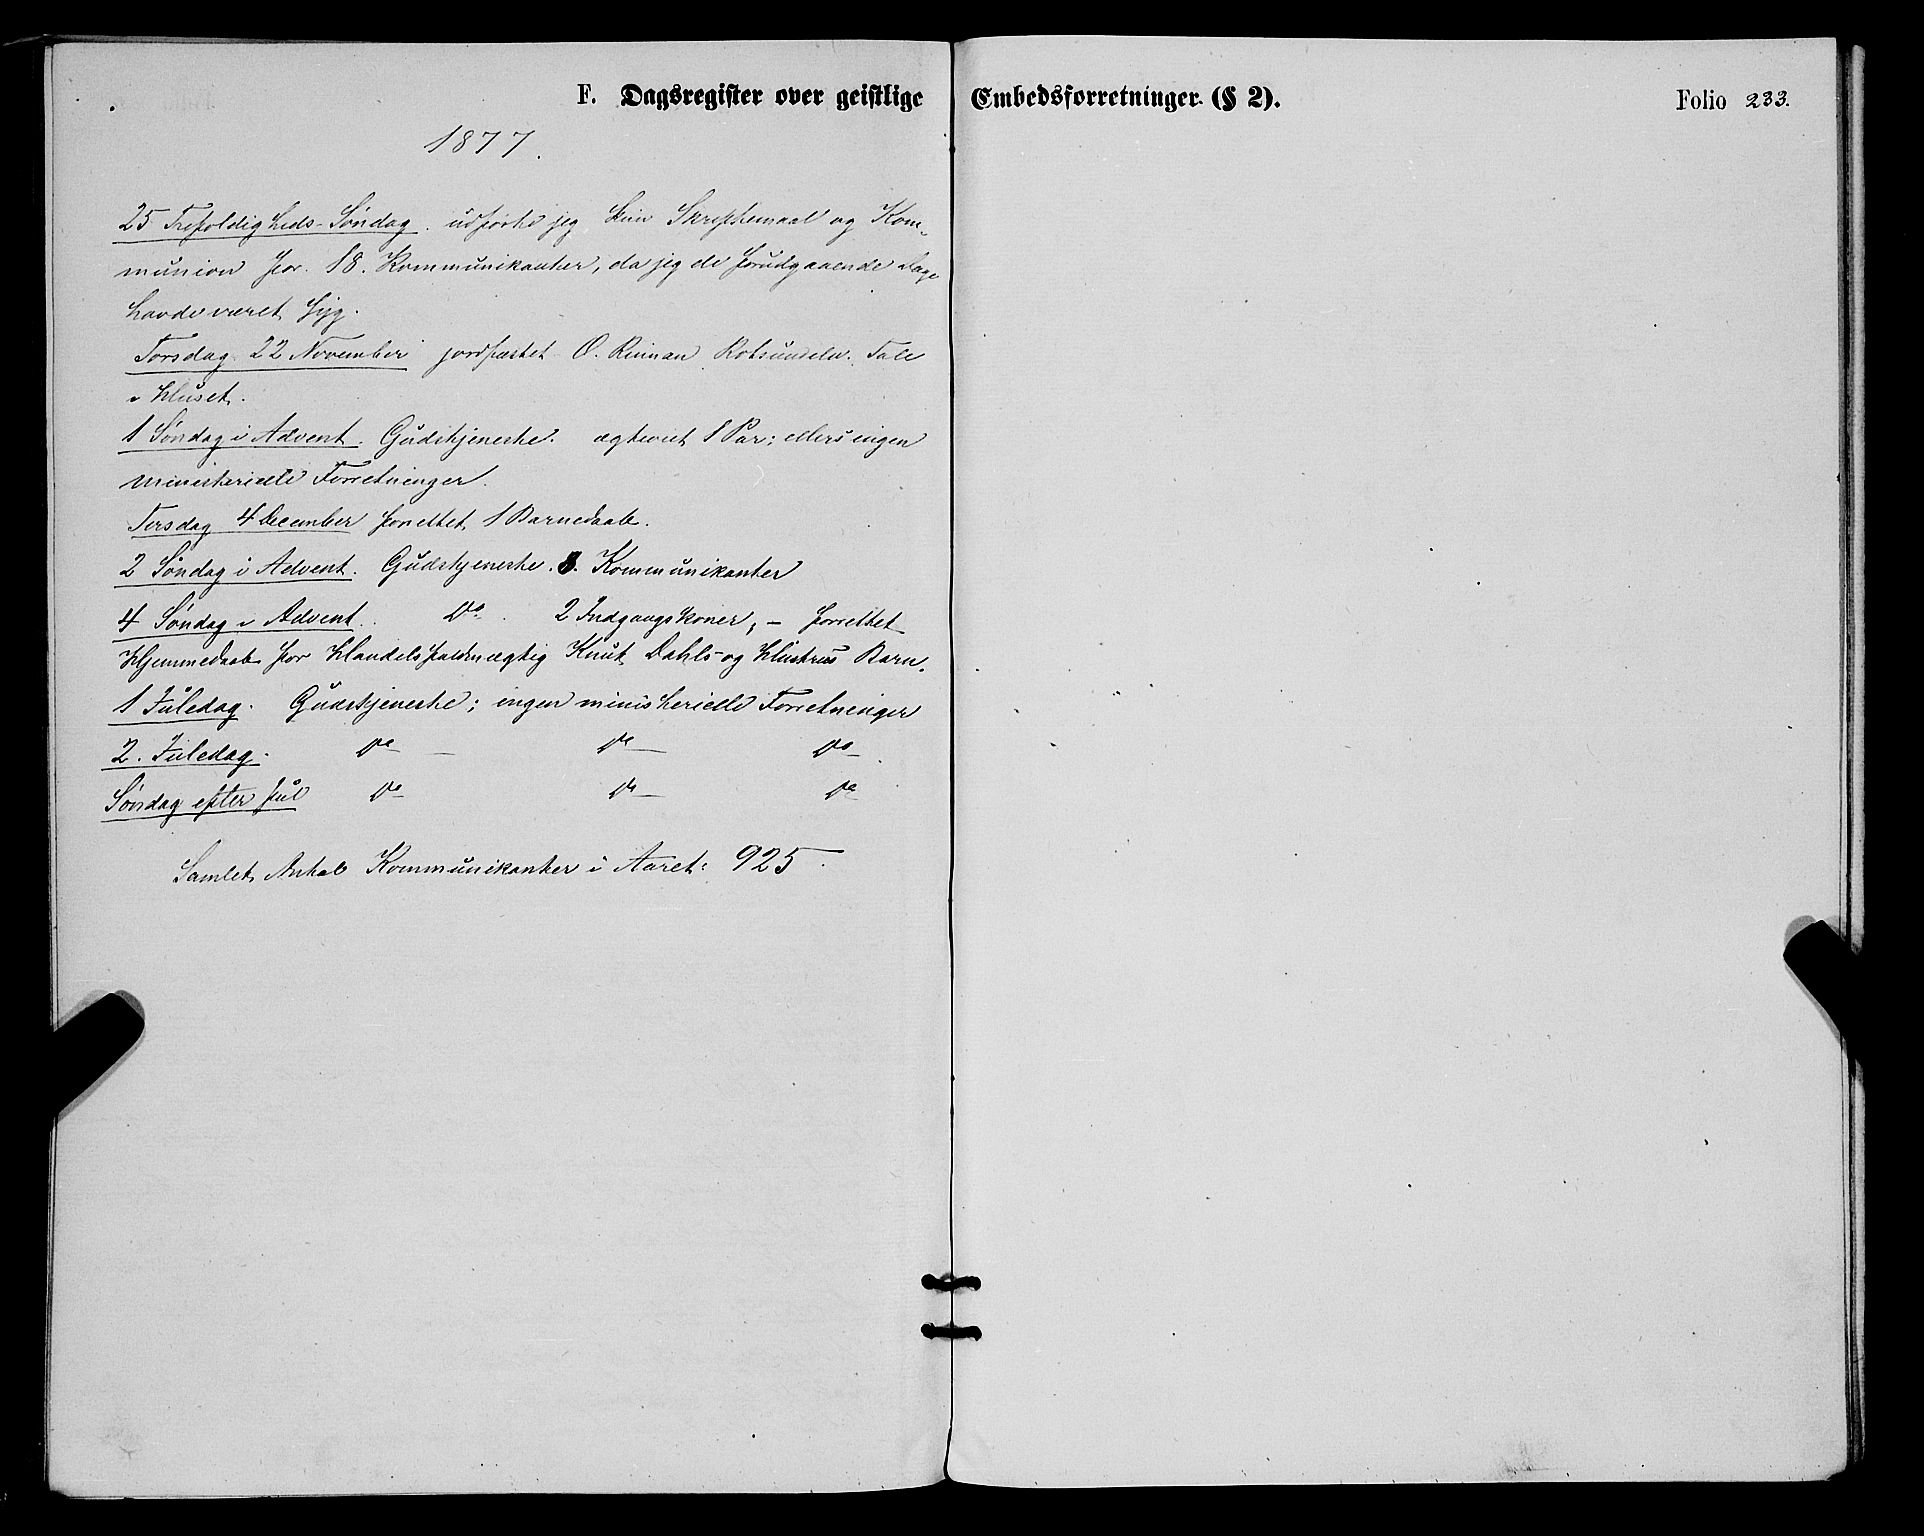 F. Dagsregister over geistlige Embedsforretninger. (§ 2). Folio 233.
1877.
25 Trefoldigheds-Søndag. udførte jeg kun Skriftemaal og Kom-
munion for 18. Kommunikanter, da jeg de forudgaaende Dage
havde været syg.
Torsdag 22 November jordfæstet O. Tale
i Huset.
1 Søndag i Advent. Gudstjeneste. ægteviet 1 Par; ellers ingen
ministerielle Forretninger.
Tirsdag 4 December forrettet 1 Barnedaab.
2 Søndag i Advent. Gudstjeneste. 8. Kommunikanter
4 Søndag i Advent. Do. 2 Indgangskoner, - forrettet
Hjemmedaab for Handelsfuldmægtig Knut Dahls og Hustrus Barn.
1 Juledag. Gudstjeneste; ingen ministerielle Forretninger
2. Juledag. Do - Do - Do -
Søndag efter Jul Do - Do - Do
Samlet Antal Kommunikanter i Aaret: 925.